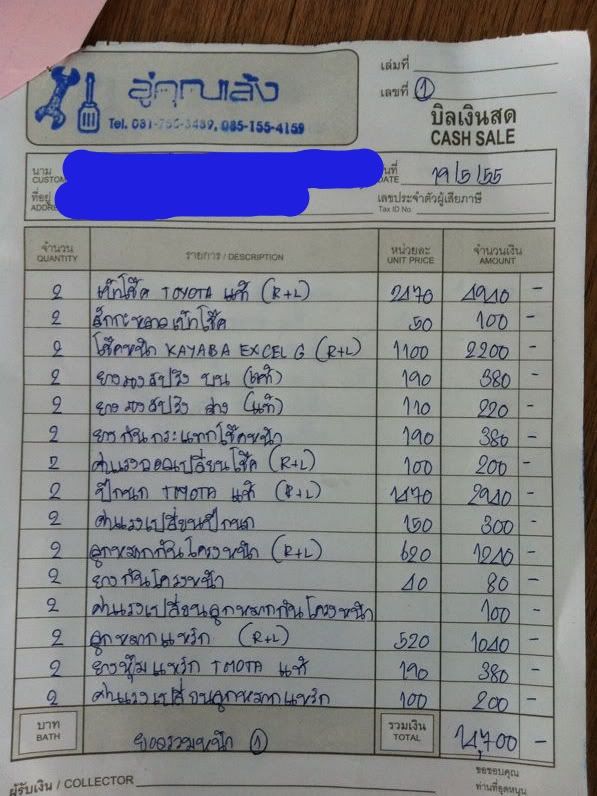 อู่คุณเล้ง
Tel. 081-755-3439, 085-155-4159
เล่มที่
เลขที่ 1
บิลเงินสด
CASH SALE
นาม
CUSTOM
วันที่ 19/5/55
DATE
ที่อยู่
ADDRE
เลขประจำตัวผู้เสียภาษี
Tax ID No.
จำนวน รายการ / DESCRIPTION หน่วยละ จำนวนเงิน
QUANTITY UNIT PRICE AMOUNT
2 เบ้าโช๊ค TOYOTA แท้ (R+L) 2470 4940 -
2 ลูกกะหลาดเบ้าโช๊ค 50 100 -
2 โช๊คหน้า KAYABA EXCEL G (R+L) 1100 2200 -
2 ยางรองสปริง บน (แท้) 190 380 -
2 ยางรองสปริง ล่าง (แท้) 110 220 -
2 ยางกันกระแทกโช๊คหน้า 190 380 -
2 ค่าแรงถอดเปลี่ยนโช๊ค (R+L) 100 200 -
2 ปีกนก TOYOTA แท้ (R+L) 1470 2940 -
2 ค่าแรงเปลี่ยนปีกนก 150 300 -
2 ลูกหมากกันโครงหน้า (R+L) 620 1240 -
2 ยางกันโครงหน้า 40 80 -
2 ค่าแรงเปลี่ยนลูกหมากกันโครงหน้า 100 -
2 ลูกหมากแร็ค (R+L) 520 1040 -
2 ยางหุ้มแร็ค TOYOTA แท้ 190 380 -
2 ค่าแรงเปลี่ยนลูกหมากแร็ค 100 200 -
บาท ยอดรวมหน้า 1 รวมเงิน 14,700 -
BATH TOTAL
ผู้รับเงิน / COLLECTOR
ขอขอบคุณ
ท่านที่อุดหนุน